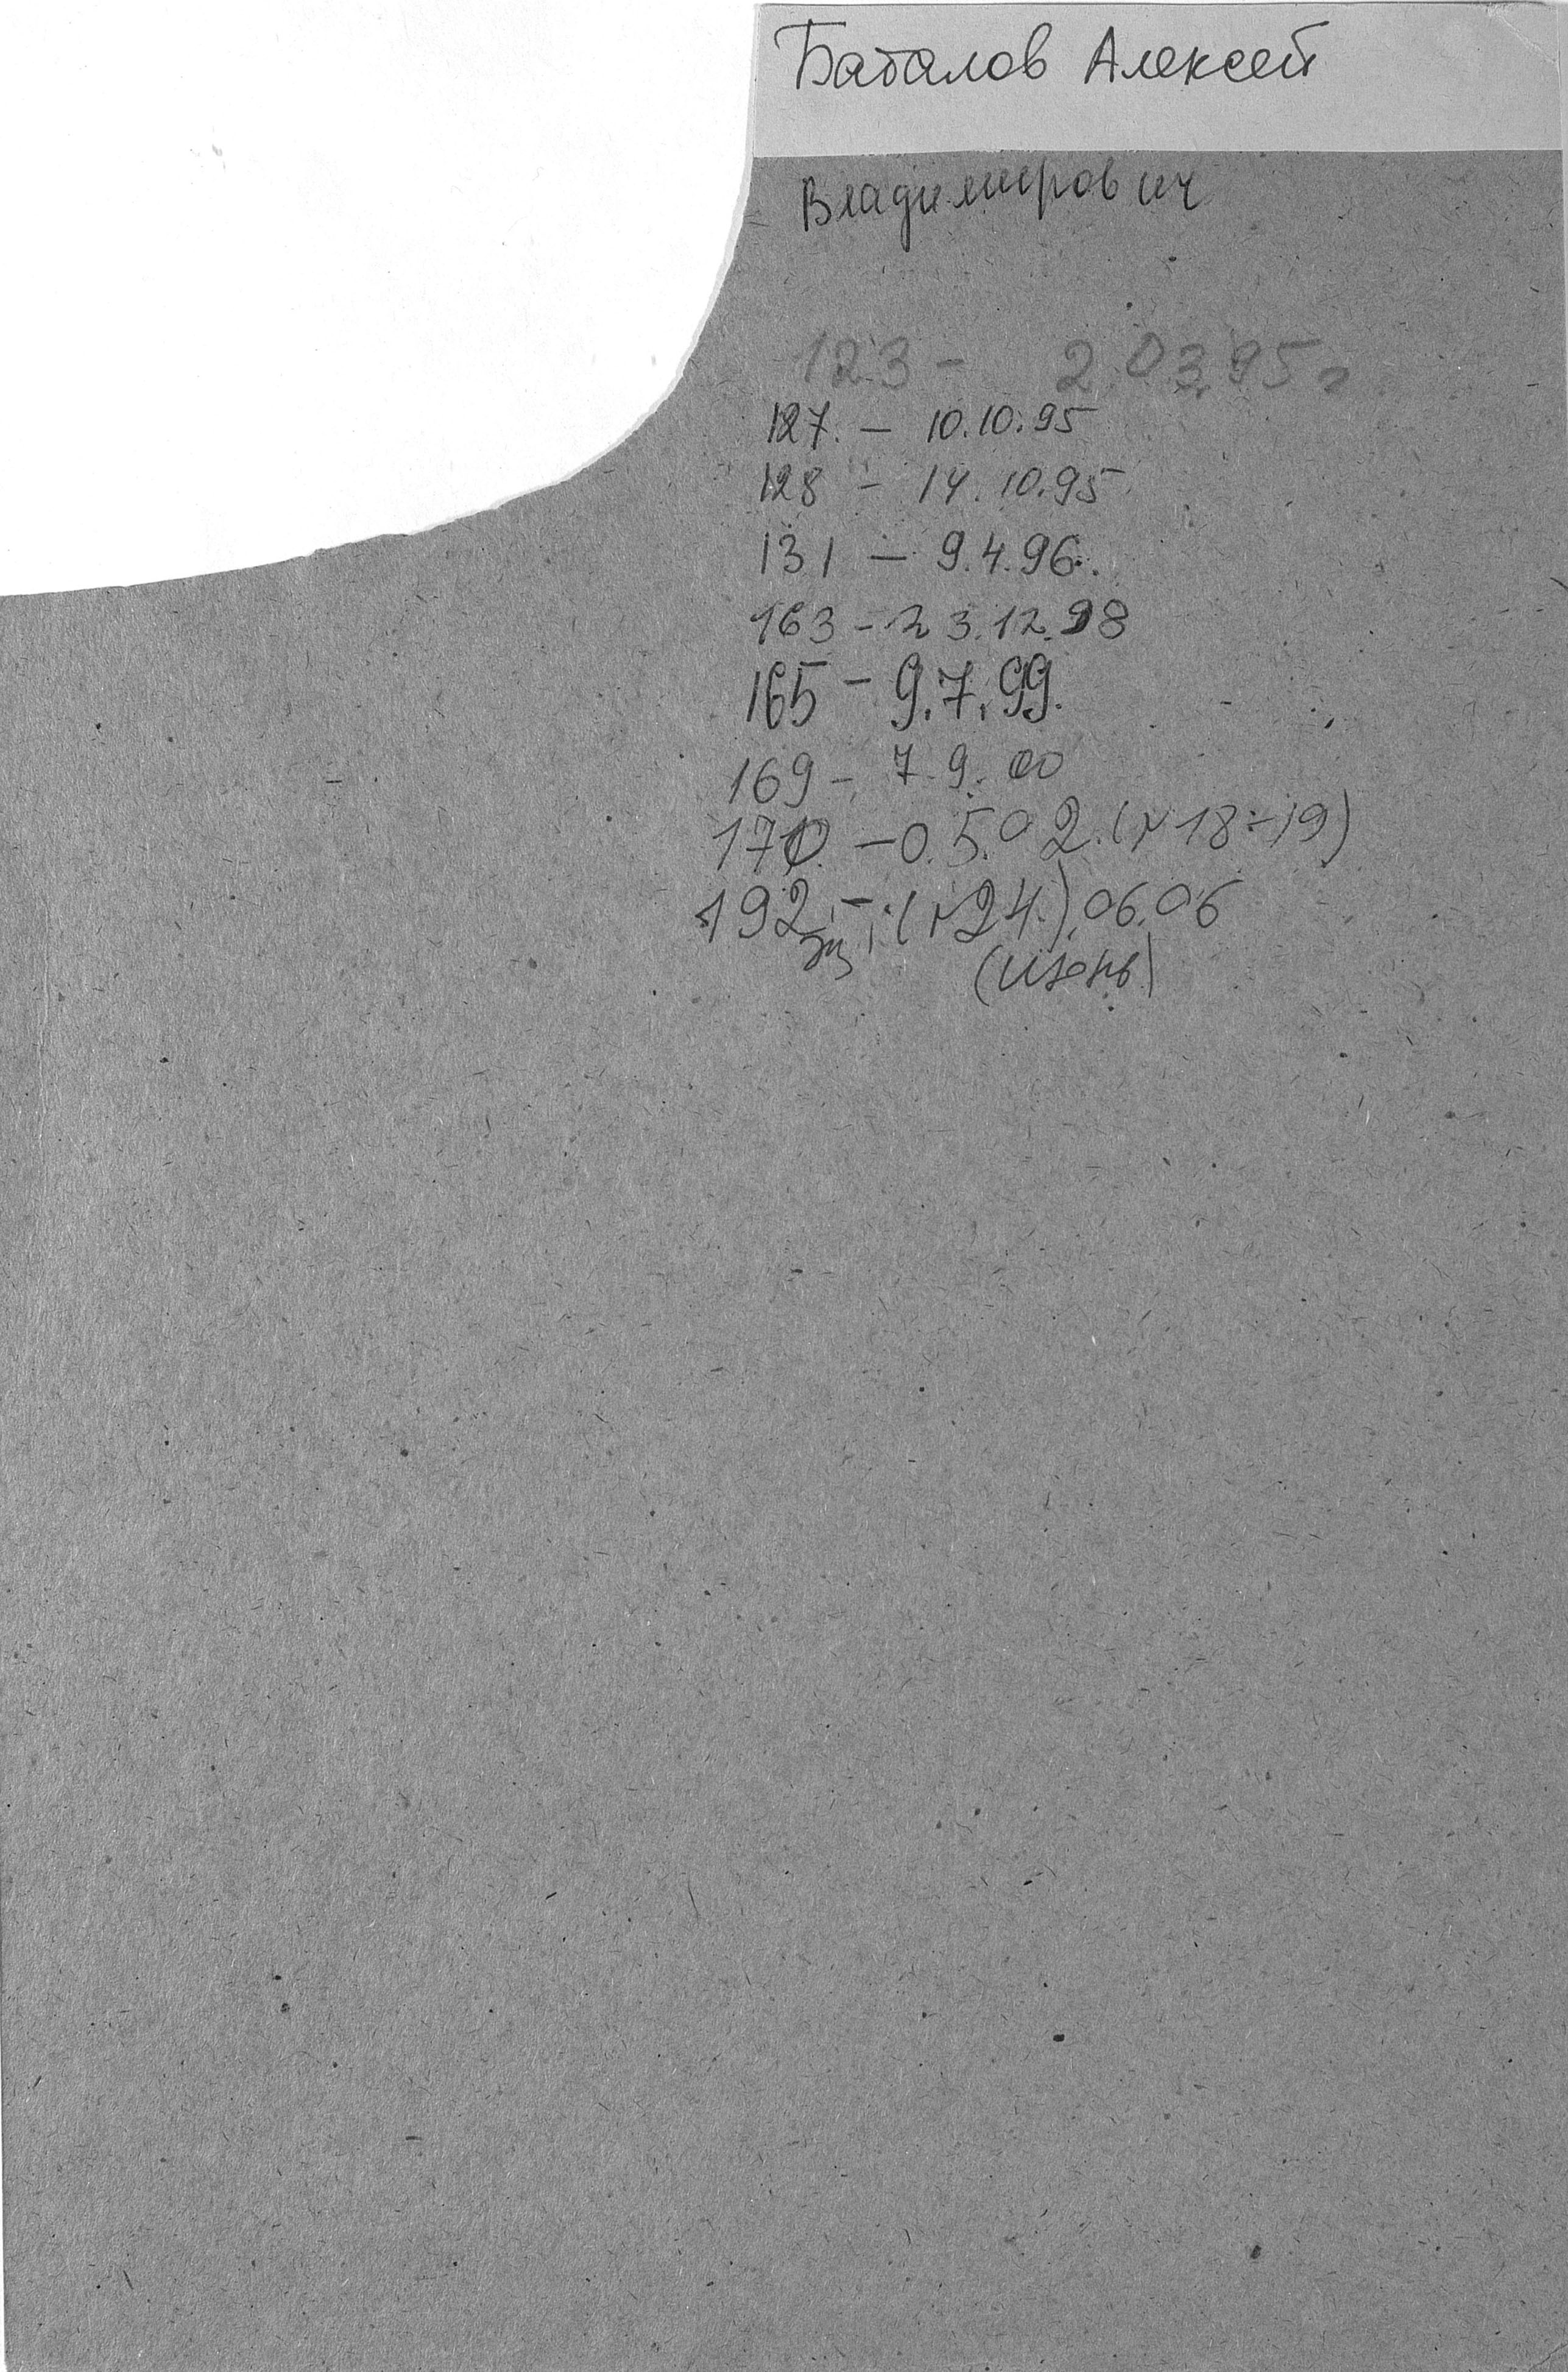 Баталов Алексей
Владимирович
123 - 2.03.95г
127. - 10.10.95
128 - 14.10.95
131 - 9.4.96.
163 - 23.12.98
165 - 9.7.99.
169 - 7.9.00
170 - 0.5.02. (№18-19)
192 - (№24) 06.06
(июнь)